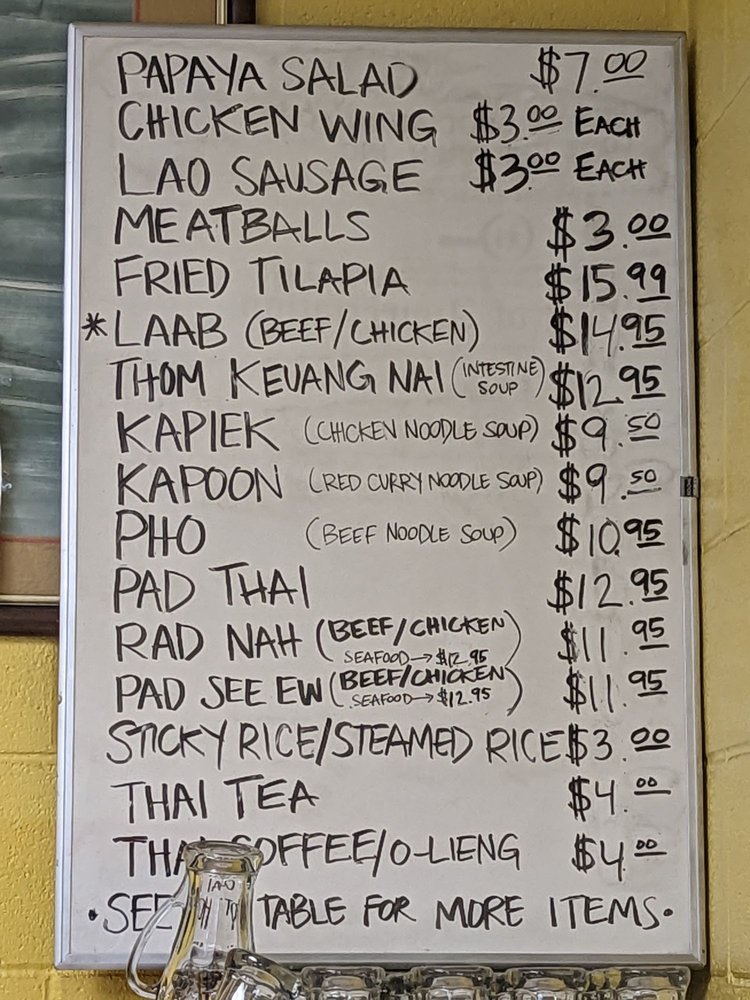 PAPAYA SALAD $7.00
CHICKEN WING $3.00 EACH
LAO SAUSAGE $3.00 EACH
MEATBALLS $3.00
FRIED TILAPIA $15.99
*LAAB (BEEF/CHICKEN) $14.95
THOM KEUANG NAI (INTESTINE SOUP) $12.95
KAPIEK (CHICKEN NOODLE SOUP) $9.50
KAPOON (RED CURRY NOODLE SOUP) $9.50
PHO (BEEF NOODLE SOUP) $10.95
PAD THAI $12.95
RAD NAH (BEEF/CHICKEN) $11.95
SEAFOOD→$12.95
PAD SEE EW (BEEF/CHICKEN) $11.95
SEAFOOD→$12.95
STICKY RICE/STEAMED RICE $3.00
THAI TEA $4.00
THAI COFFEE/O-LIENG $4.00
•SEE TABLE FOR MORE ITEMS•